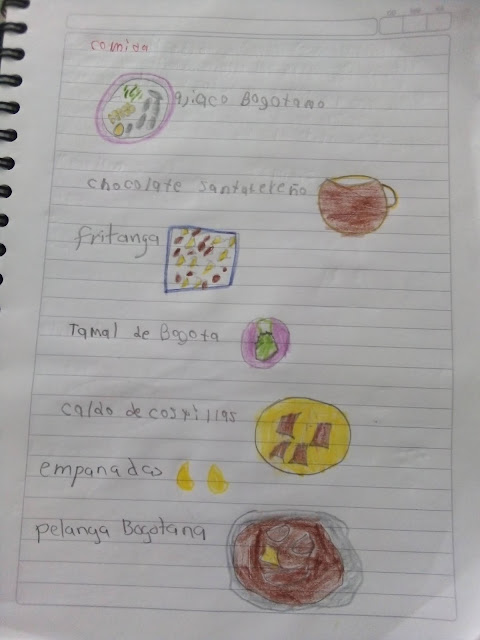 comida
ajiaco Bogotano
chocolate santafereño
fritanga
Tamal de Bogota
caldo de costillas
empanadas
pelanga Bogotana